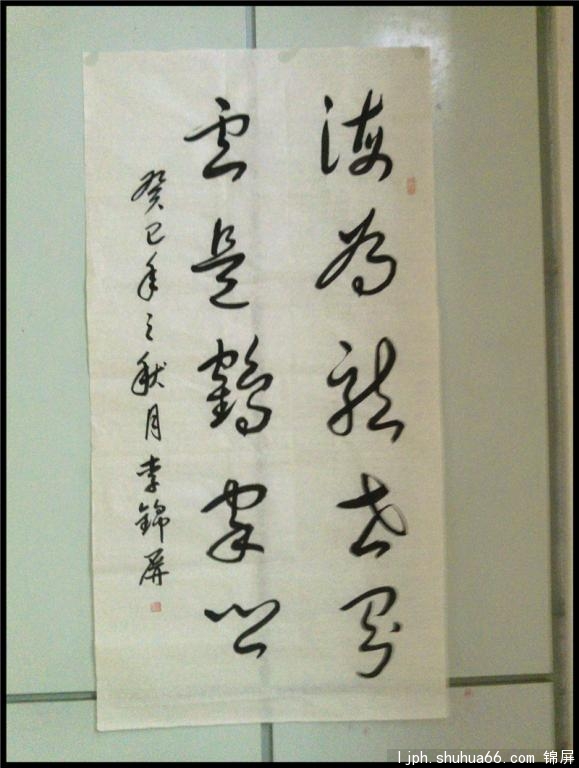 海為龍世界
雲是鶴家鄉
癸巳年之秋月李錦屏
ljph.shuhua66.com 锦屏